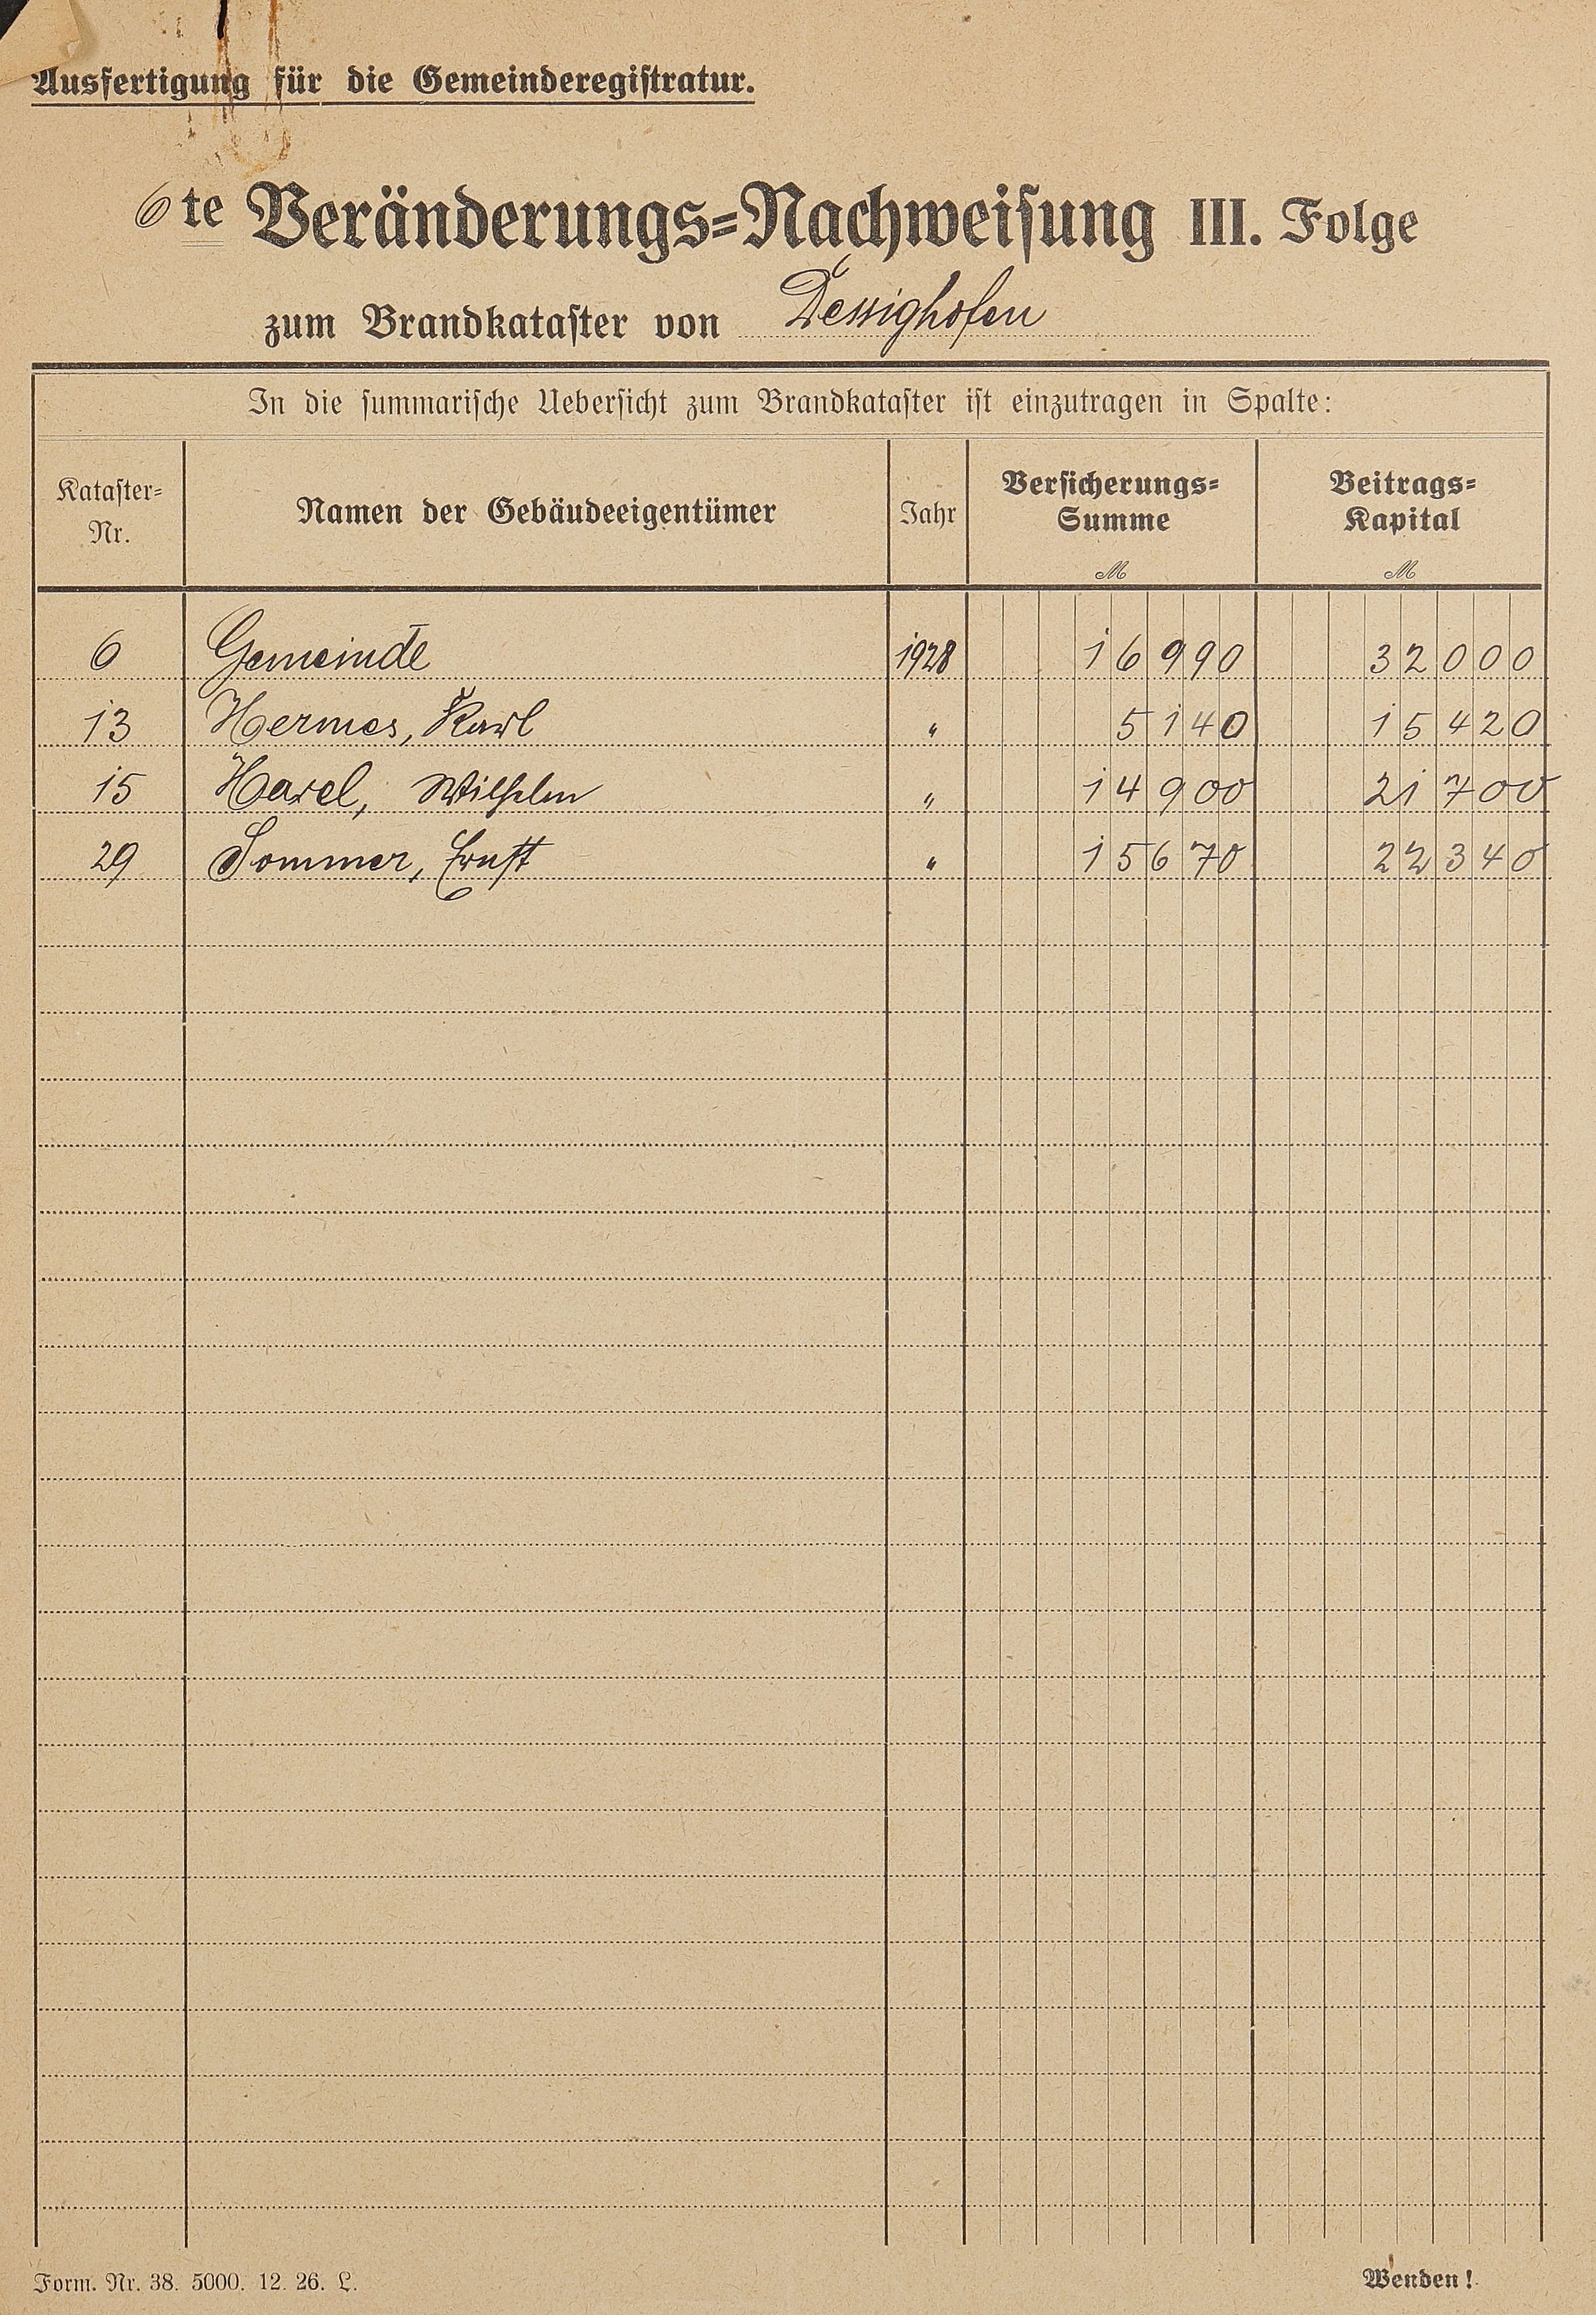 Ausfertigung für die Gemeinderegistratur.
6te Veränderungs=Nachweisung III. Folge
zum Brandkataster von Dessighofen
In die summarische Uebersicht zum Brandkataster ist einzutragen in Spalte:
Kataster=
Nr.
Namen der Gebäudeeigentümer
Jahr
Versicherungs=
Summe
M
Beitrags=
Kapital
M
6 Gemeinde 1928 16990 32000
13 Hermes, Karl " 5140 15420
15 Hasel, Wilhelm " 14900 21700
29 Sommer, Ernst " 15670 22340
Form. Nr. 38. 5000. 12. 26. L.
Wenden!